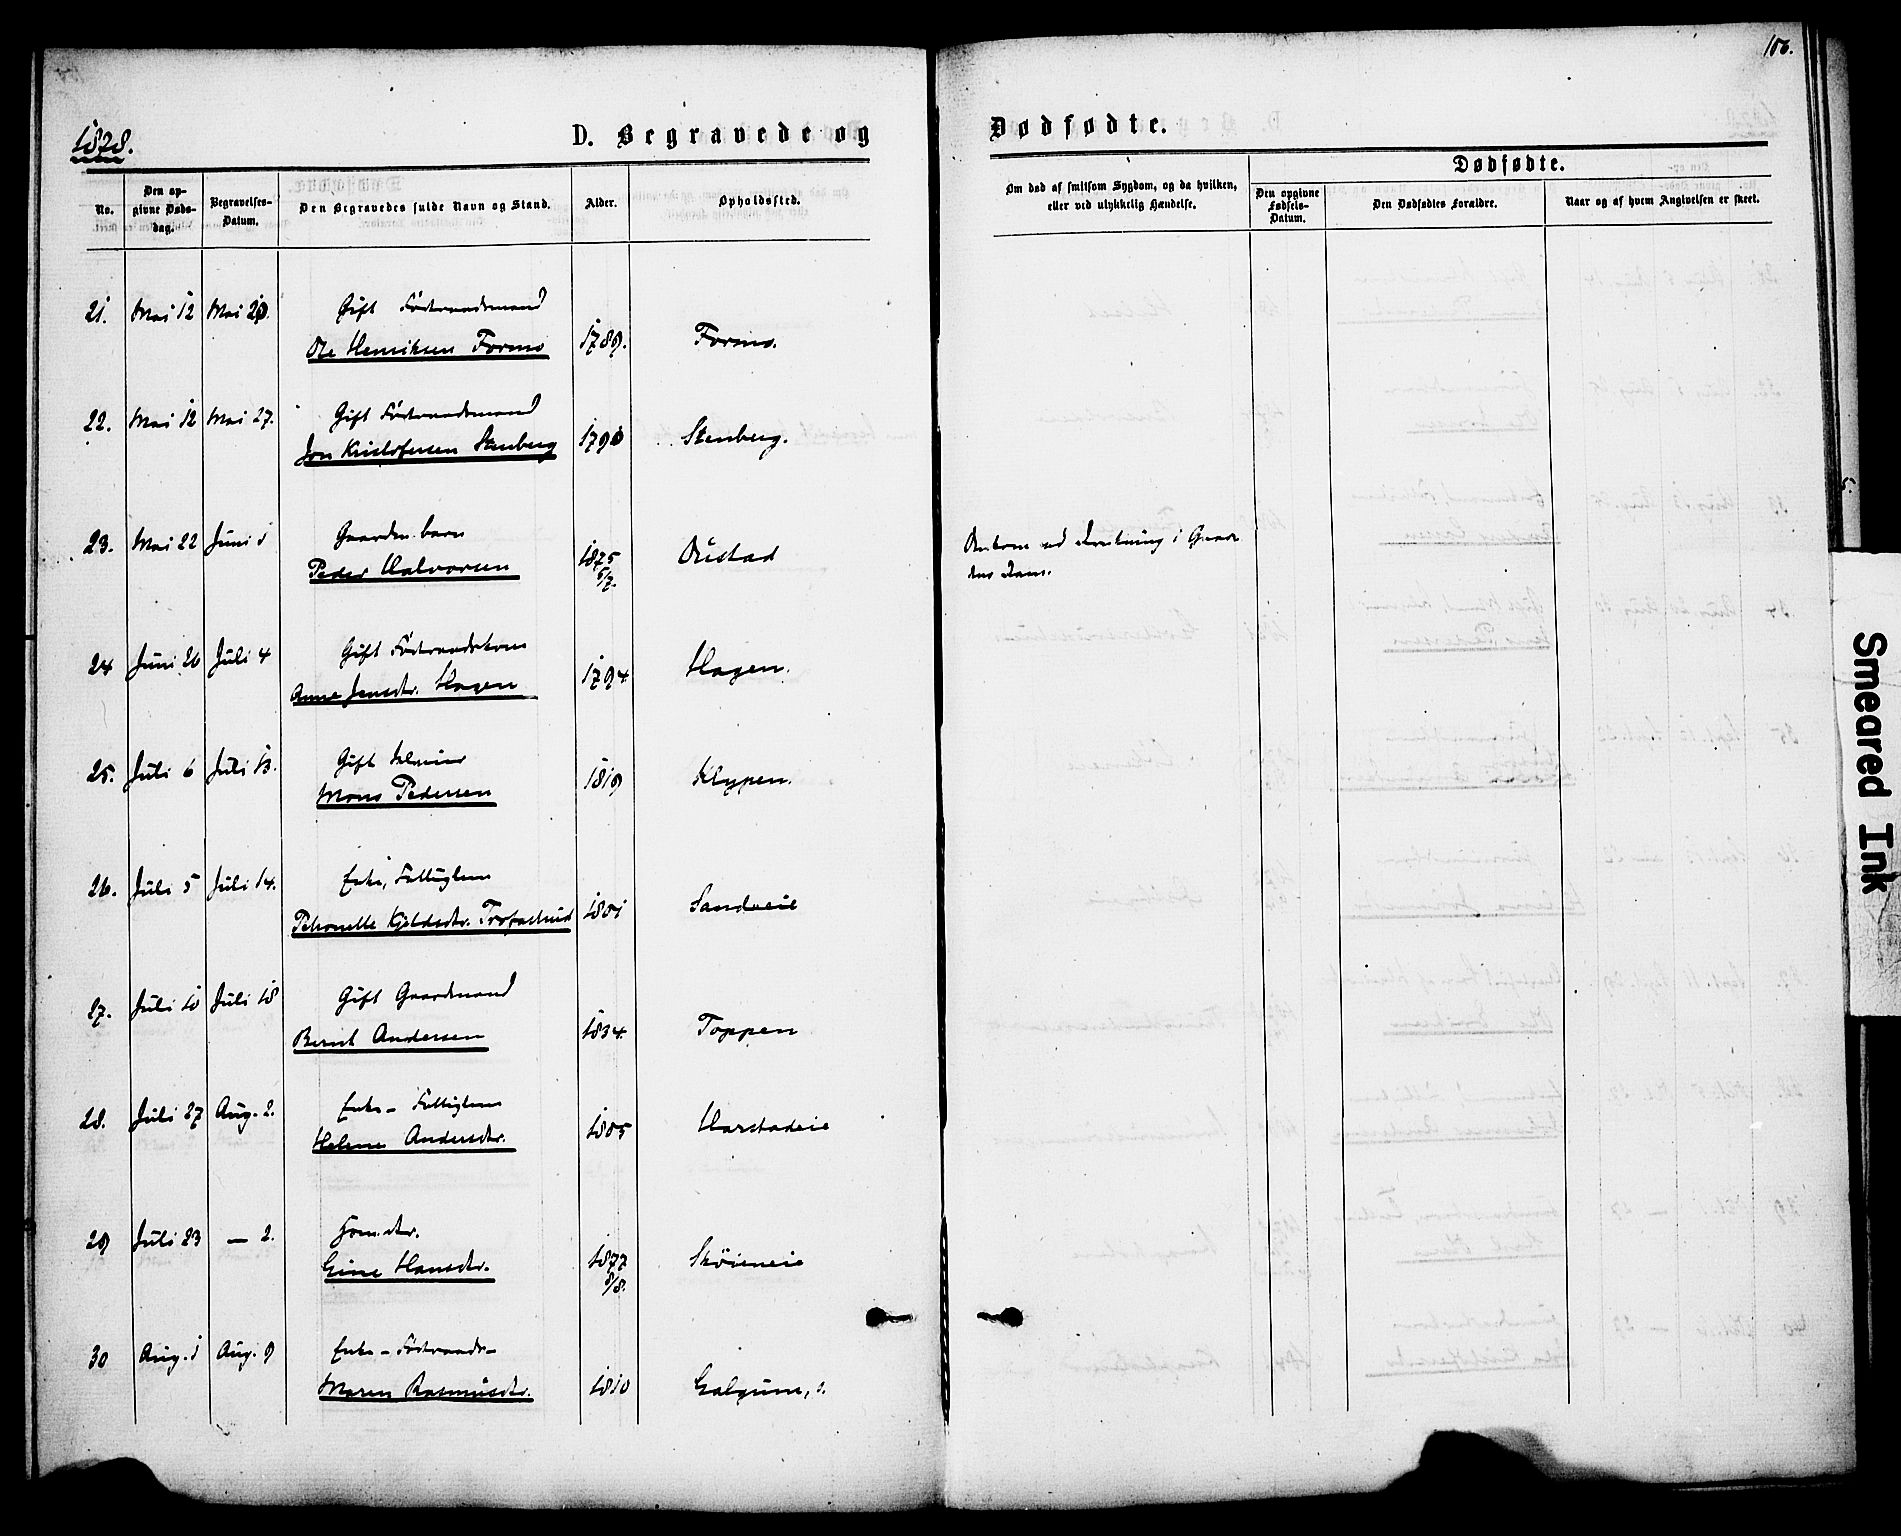 106.
1878.
D. Begravede og
Dødfødte.
No.
Den op-
givne Døds-
dag.
Begravelses-
Datum.
Den Begravedes fulde Navn og Stand.
Alder.
Opholdssted.
Om død af smitsom Sygdom, og da hvilken,
eller ved ulykkelig Hændelse.
Dødfødte.
Den opgivne
Fødsels-
Datum.
Den Dødfødtes Forældre.
Naar og af hvem Angivelsen er skeet.
21. Mai 12 Mai 20. Gift Føderaadsmand
Ole Henriksen Formo 1789. Formo.
22. Mai 12 Mai 27. Gift Føderaadsmand
Jon Kristofersen Stenberg 1790 Stenberg.
23. Mai 22 Juni 1 Gaardm. barn
Peder Halvorsen 1875 5/7. Øistad
Omkom ved Drukning i Gaar-
dens Dam.
24 Juni 26 Juli 4 Gift Føderaadskone
Anne Jensdtr. Hagen 1794 Hagen.
25. Juli 6 Juli 13. Gift
Mons Pedersen 1819 Klypen.
26. Juli 5 Juli 14. Enke, Fattiglem
Petronelle Kjeldsdtr. 1801 Sandveie
27. Juli 10 Juli 18 Gift Gaardmand
Bernt Andersen 1834. Toppen
28. Juli 27 Aug. 2. Enke – Fattiglem
Helene Andersdtr. 1805 Harstadeie
29 Juli 23 – 2.
Gine Hansdtr. 1877 8/8. Skøieneie
30 Aug. 1 Aug. 9 Enke – Føderaads–
Maren Rasmusdtr. 1810 Galgum,
Smeared Ink